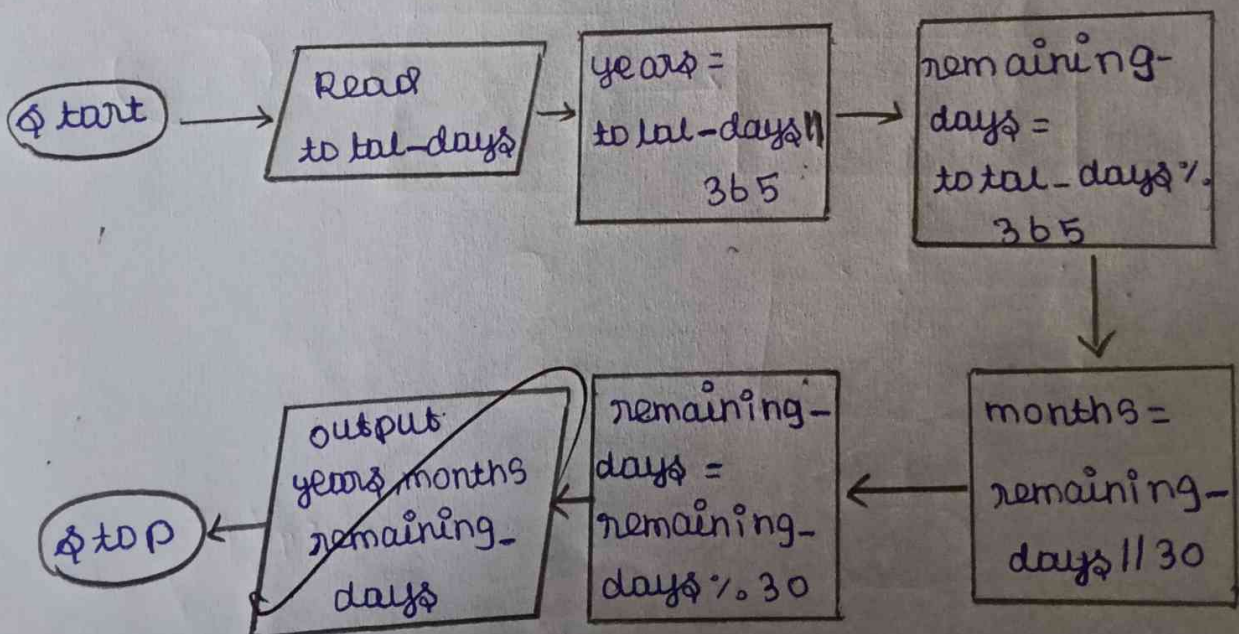 Start
Read
total-days
years =
total-days//
365
remaining-
days =
total-days%
365
months =
remaining-
days//30
remaining-
days =
remaining-
days%30
output
years, months
remaining-
days
Stop